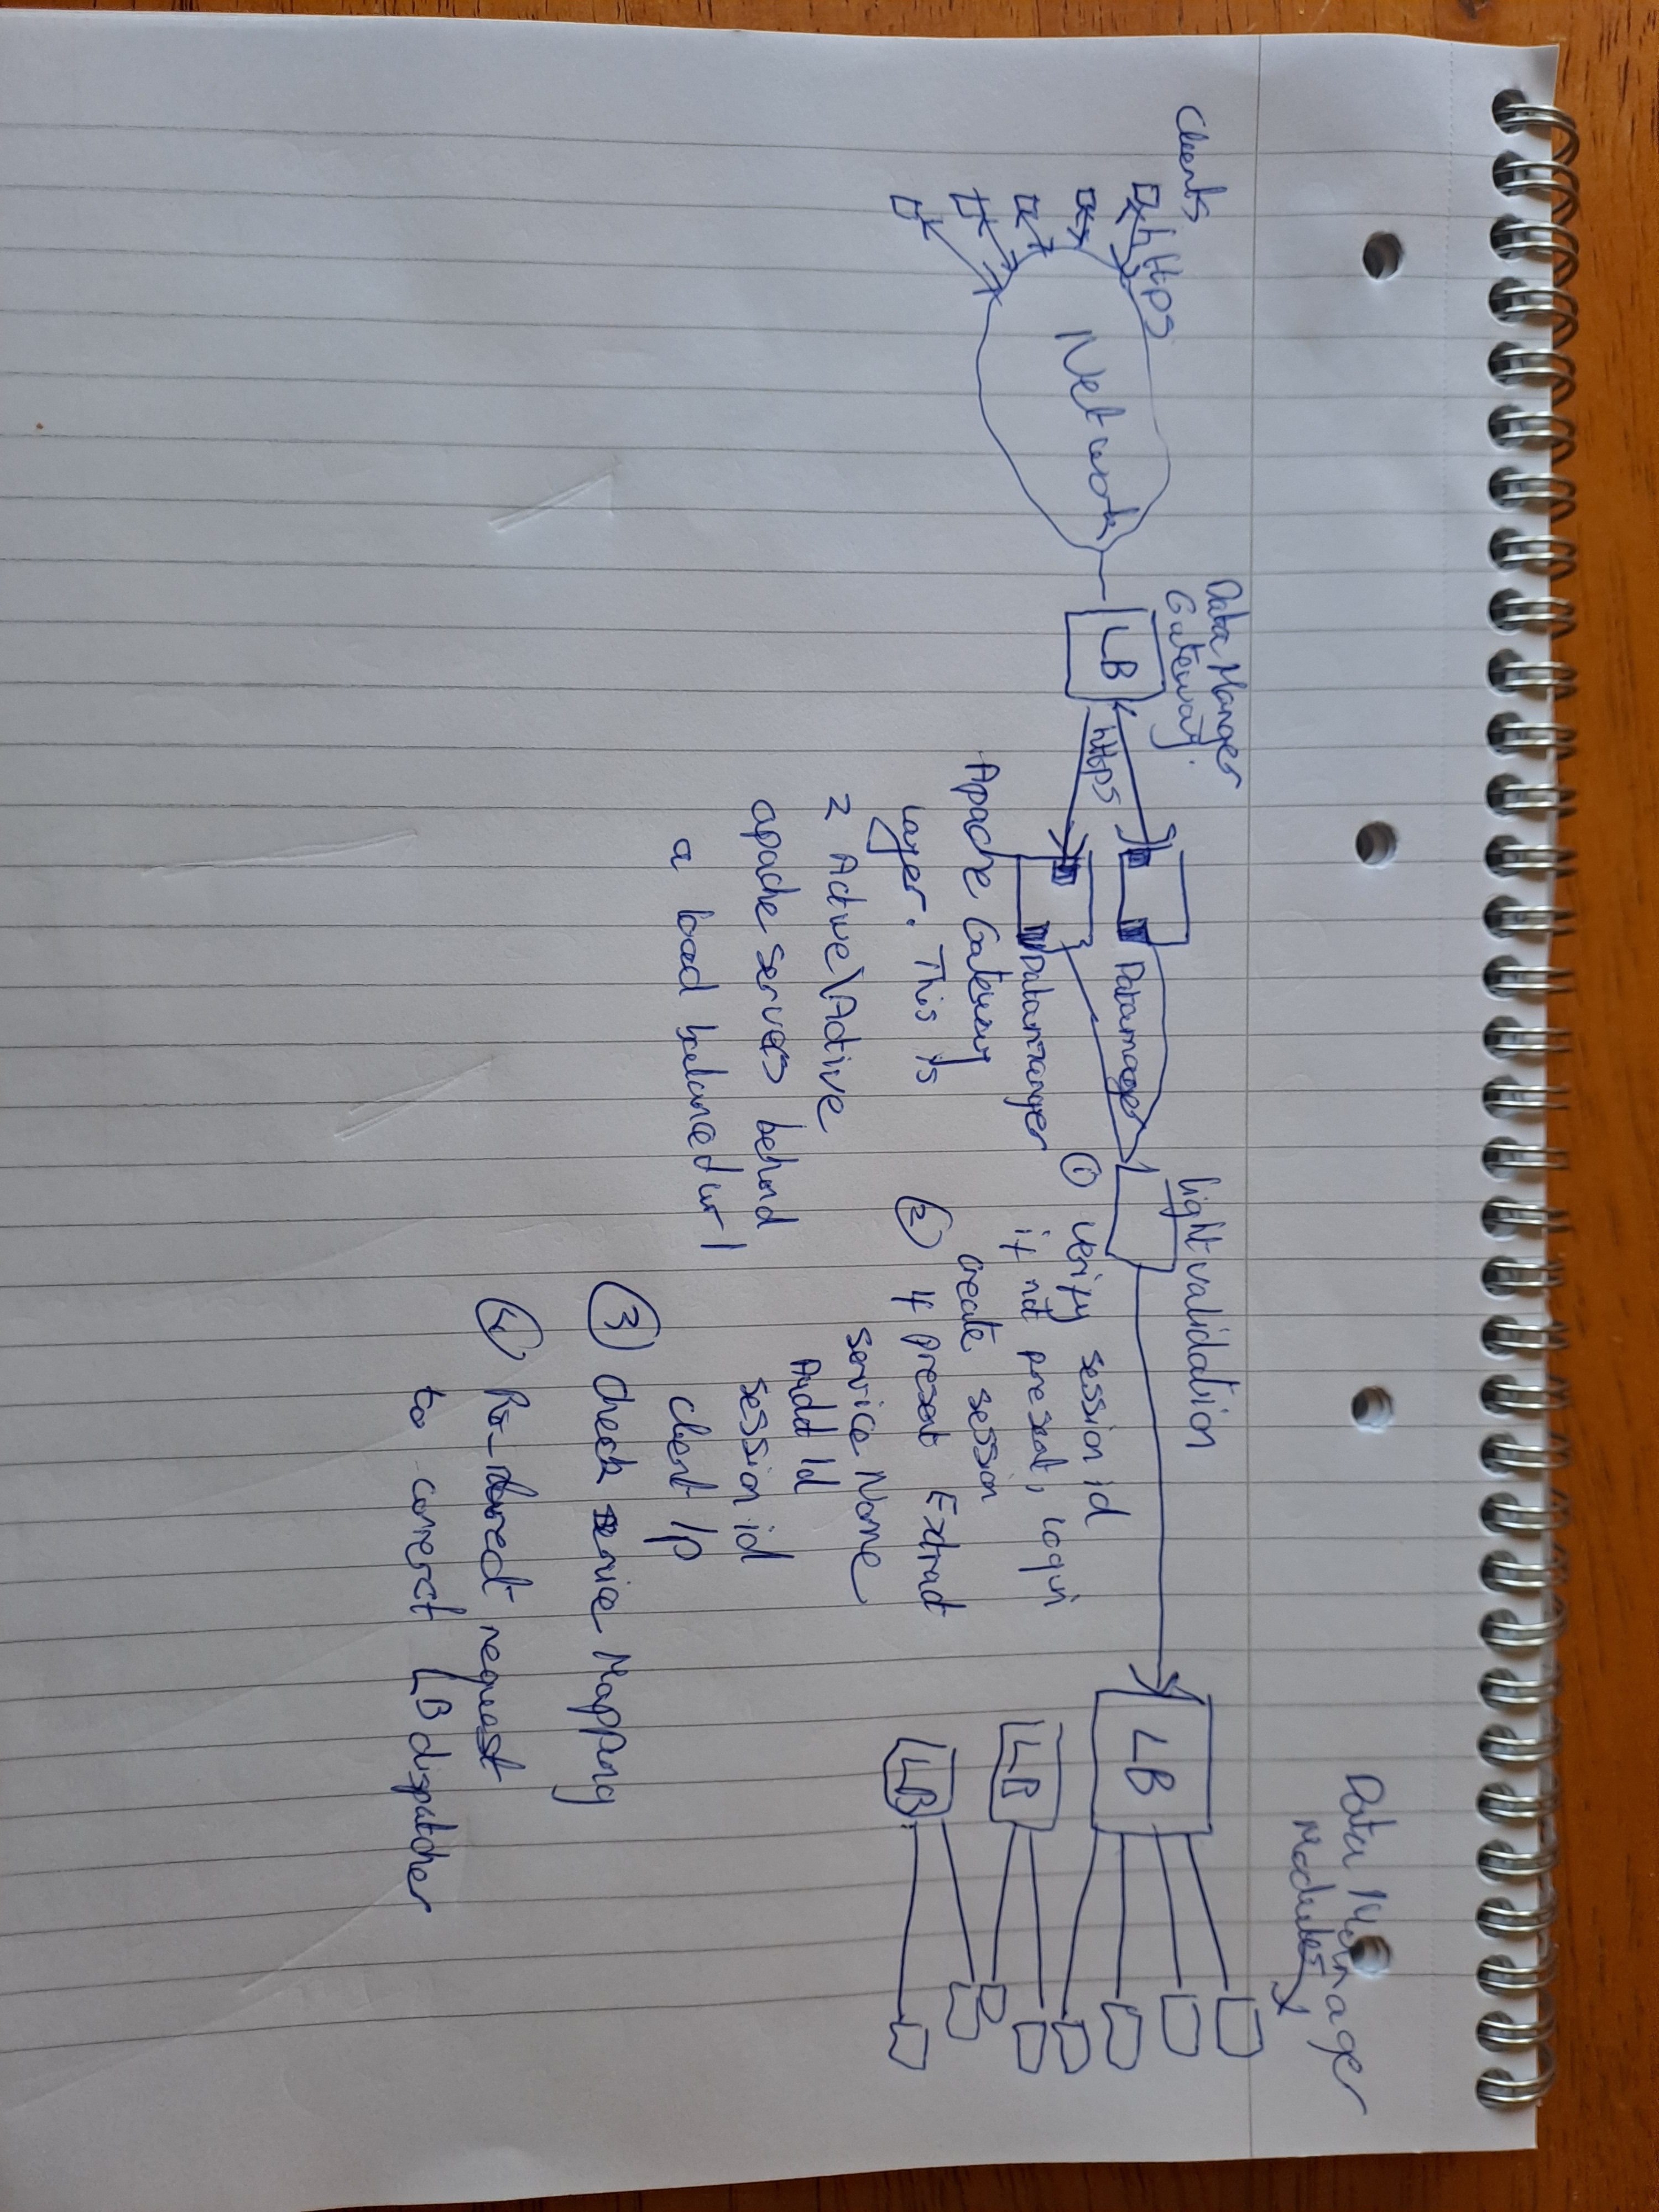 Clients
https
Network
Data Manger
Gateway.
LB
https
Datamager
Datamanger
Apache Gateway
layer. This is
2 Active\Active
apache servers behind
a load
light validation
① verify session id
if not present, login
create session
② If present Extract
service Name
Add Id
session id
client Ip
③ check service Mapping
④ Re-direct request
to correct LB dispatcher
LB
LB
LB
Data Manager
Modules